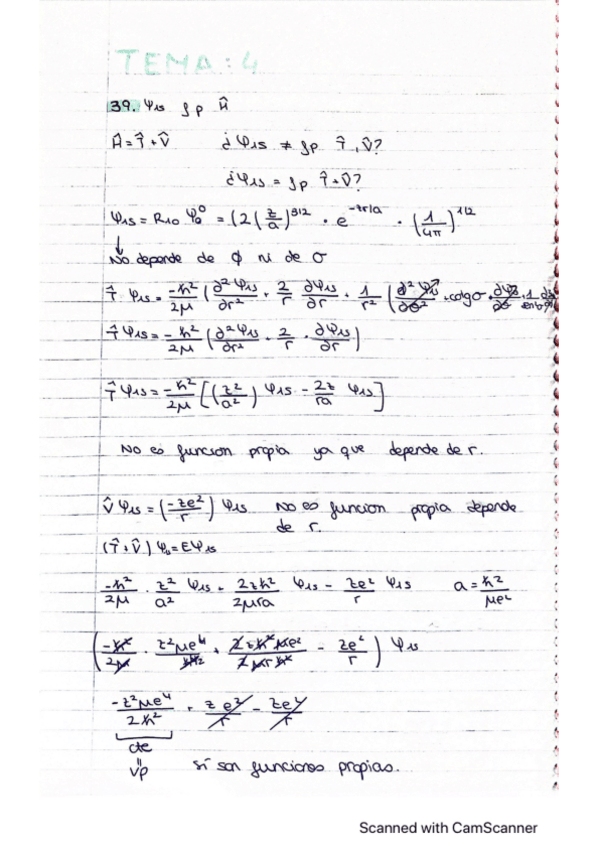 TEMA: 4
39. Ψ1s fp Ĥ
Ĥ = T̂ + V̂ ¿Ψ1s ≠ fp T̂, V̂?
¿Ψ1s = fp T̂+V̂?
Ψ1s = R10 Ψ0^0 = (2(z/a)^3/2 · e^-zr/a · (1/4π)^1/2
↓
No depende de ϕ ni de σ
T̂ · Ψ1s = -ħ²/2μ (∂²Ψ1s/∂r² + 2/r ∂Ψ1s/∂r + 1/r² (
T̂ Ψ1s = -ħ²/2μ (∂²Ψ1s/∂r² + 2/r · ∂Ψ1s/∂r)
T̂ Ψ1s = -ħ²/2μ [(z²/a²) Ψ1s - 2z/ra Ψ1s]
No es funcion propia ya que depende de r.
V̂ Ψ1s = (-ze²/r) Ψ1s No es funcion propia depende
de r.
(T̂+V̂) Ψ0 = EΨ1s
-ħ²/2μ · z²/a² Ψ1s + 2zħ²/2μra Ψ1s - ze²/r Ψ1s a = ħ²/μe²
(-ħ²/2μ · z²μe⁴/ħħ² + 2zħ²μe²/2μrħ² - ze²/r) Ψ1s
-z²μe⁴/2ħ² + ze²/r - ze²/r
cte
"
vp sí son funciones propias.
Scanned with CamScanner